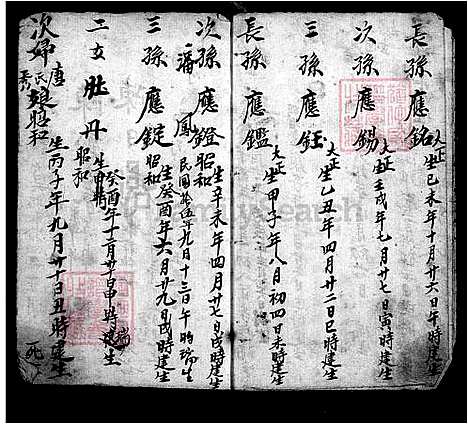 長孫 應銘 大正 生己未年十月廿六日午時建生
次孫 應錫 大正 生壬戌年七月廿七日寅時建生
三孫 應鈺 大正 生乙丑年四月廿二日巳時建生
長孫 應鑑 大正 生甲子年八月初四日未時建生
次孫 應鐙 昭和 生辛未年四月廿七日戌時建生
一潘 鳳 民國拾伍年九月十三日午時瑞生
三孫 應錠 昭和 生癸酉年六月廿九日戌時建生
二女 牡丹 昭和 生癸酉年十二月廿日申時瑞生
次婦 唐氏 娘 昭和 生丙子年九月廿日丑時建生
FamilySearch